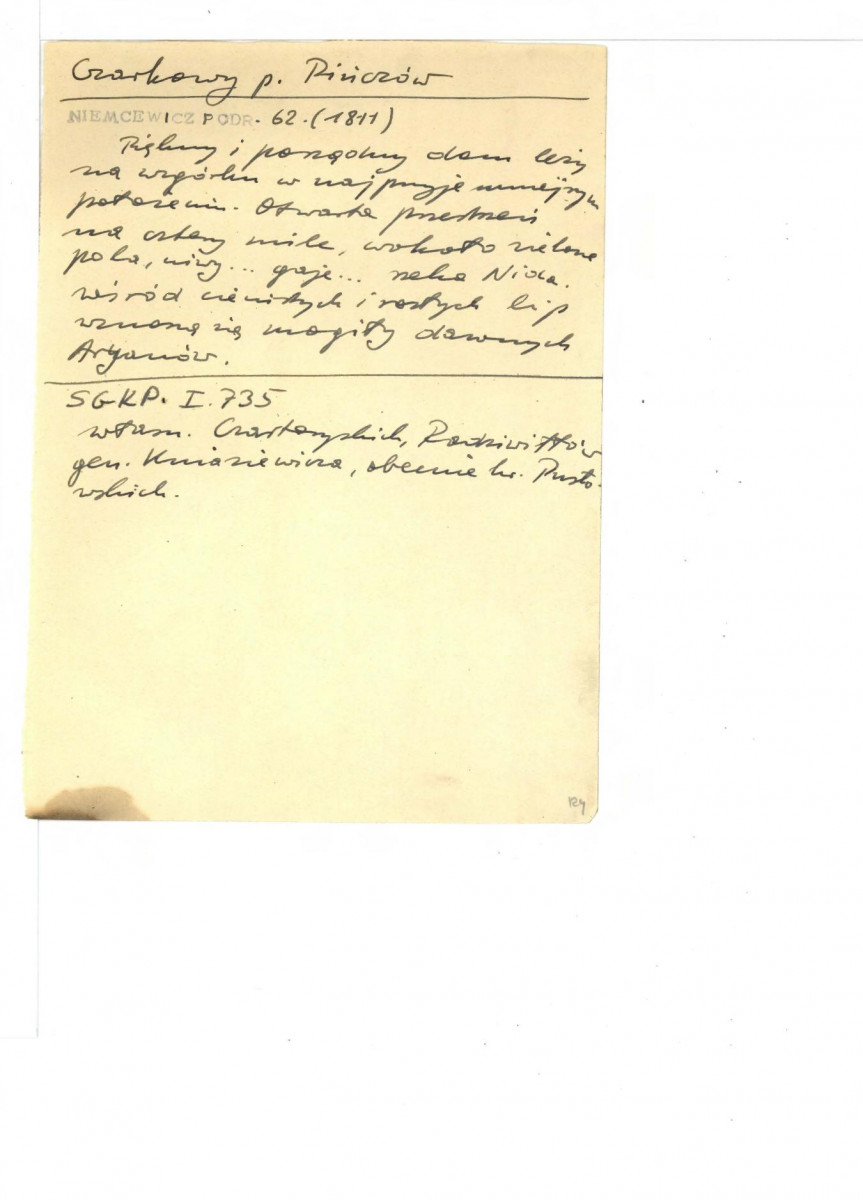 Czarkowy p. Pińczów
NIEMCEWICZ PODR. 62. (1811)
Piękny i porządny dom leży
na wzgórku w najprzyjemniejszym
położeniu. Otwarta przestrzeń
na cztery mile, wokoło zielone
pola, niwy... gaje... rzeka Nida.
wśród cienistych i rosłych lip
wznoszą się mogiły dawnych
Aryanów.
SGKP. I. 735
własn. Czartoryskich, Radziwiłłów
gen. Kniaziewicza, obecnie hr. Pusło-
wskich.